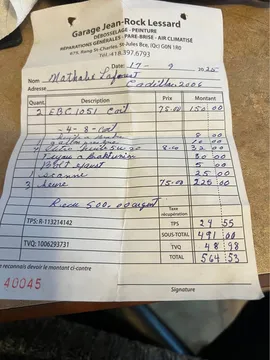 Garage Jean-Rock Lessard
DÉBOSSELAGE - PEINTURE
RÉPARATIONS GÉNÉRALES - PARE-BRISE - AIR CLIMATISÉ
675, Rang St-Charles, St-Jules Bce, (Qc) G0N 1R0
Tél.: 418.397.6793
Date: 17 - 9 / 2025
Nom Mathalie
Adresse Cadillac 2006
Quant. Description Prix Montant
2 EBC1051 Coil 75.00 150 00
-4-8-
8 00
10 00
4 8.00 32 00
1 30 00
1 5 00
1 Scanne 25 00
3 heure 75.00 225 00
Recu 500.00 argent
Taxe récupération
TPS: R-113214142 TPS 24 55
SOUS-TOTAL 491 00
TVQ: 1006293731 TVQ 48 98
TOTAL 564 53
reconnais devoir le montant ci-contre
40045
Signature